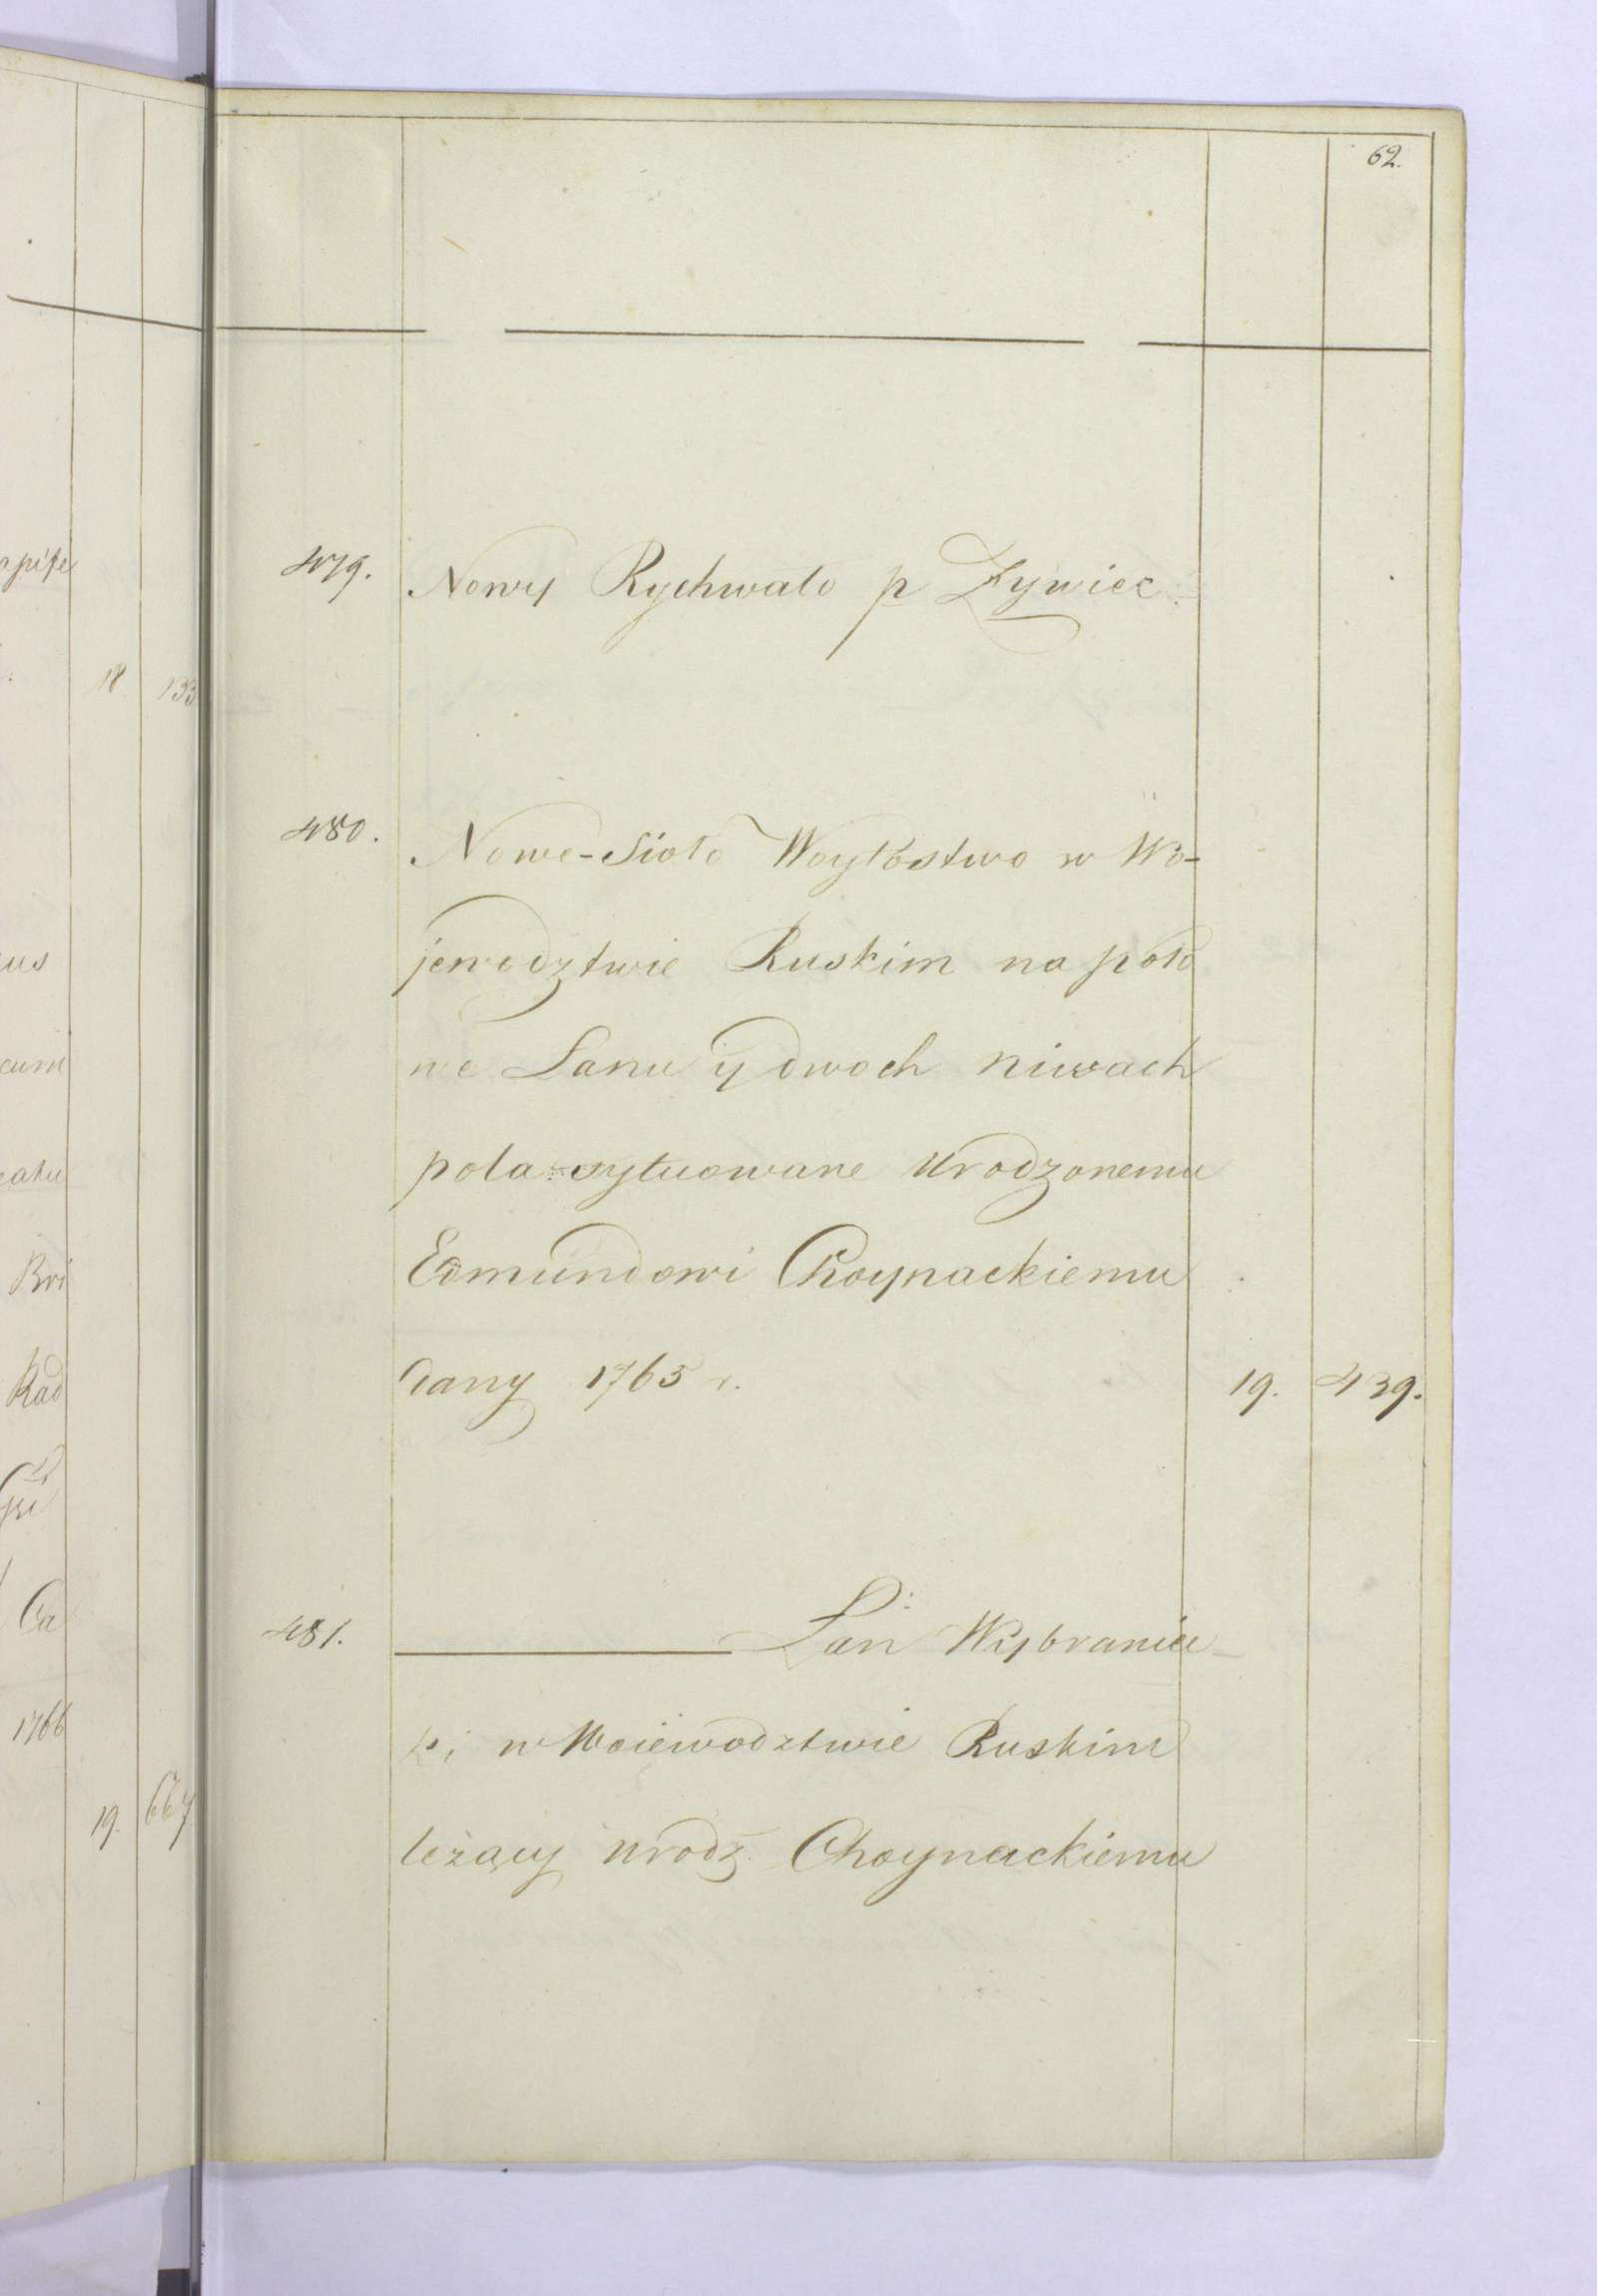 62.
479. Nowy Rychwałd p Żywiec
480. Nowe-Sioło Woytostwo w Wo-
jewodztwie Ruskim na poło
we Łanu y dwoch niwach
pola sytuowane Urodzonemu
Edmundowi Choynackiemu
dany 1765 r. 19. 439.
481. Łan Wybranie-
ki w Woiewodztwie Ruskim
leżący urodz. Choynackiemu
18. 133.
us
cum
Bri
Rad
Ca
1766
19. 667